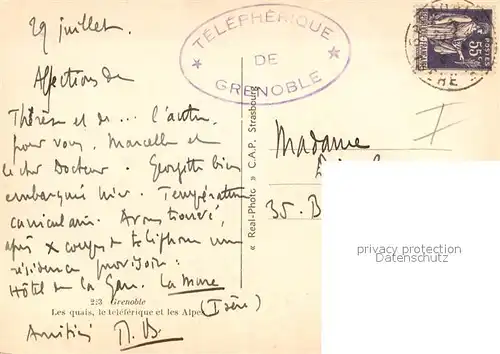 29 juillet.
TÉLÉPHÉRIQUE
DE
GRENOBLE
POSTES
55c
Affections de
Thérèse et de ... l'autre,
pour vous, Marcelle et
le cher Docteur. Georgette bien
embarquée hier. Température
caniculaire. Avons trouvé,
après x coups de téléphone une
résidence provisoire :
Hôtel de la Gare. La Mure
(Isère)
Amitiés
Madame
35. B
« Real-Photo » C.A.P. Strasbourg
223 Grenoble
Les quais, le téléférique et les Alpes
privacy protection
Datenschutz